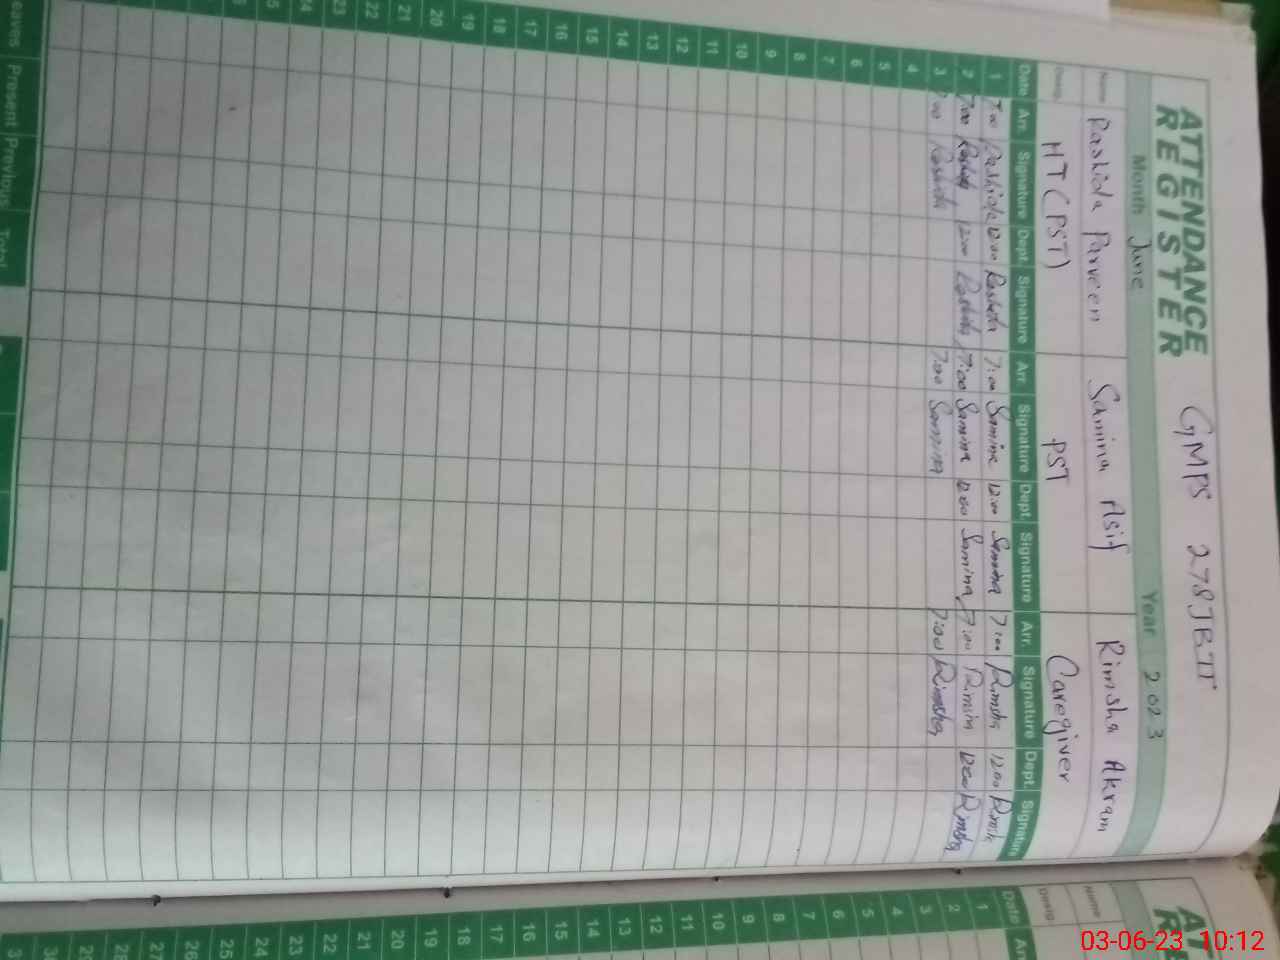 ATTENDANCE REGISTER GMPS 278JBII
Month June Year 2023
Name Rashida Parveen Samina Asif Rimsha Akram
Desig. HT (PST) PST Caregiver
Date Arr. Signature Dept. Signature Arr. Signature Dept. Signature Arr. Signature Dept. Signature
1 7:00 Rashida 12:00 Rashida 7:00 Samina 12:00 Samina 7:00 Rimsha 12:00 Rimsha
2 7:00 Rashida 12:00 Rashida 7:00 Samina 12:00 Samina 7:00 Rimsha 12:00 Rimsha
3 7:00 Rashida 7:00 Samina 7:00 Rimsha
4
5
6
7
8
9
10
11
12
13
14
15
16
17
18
19
20
21
22
23
24
25
Leaves Present Previous Total
Name
Desig.
Date
1
2
3
4
5
6
7
8
9
10
11
12
13
14
15
16
17
18
19
20
21
22
23
24
25
26
27
28
29
30
03-06-23 10:12